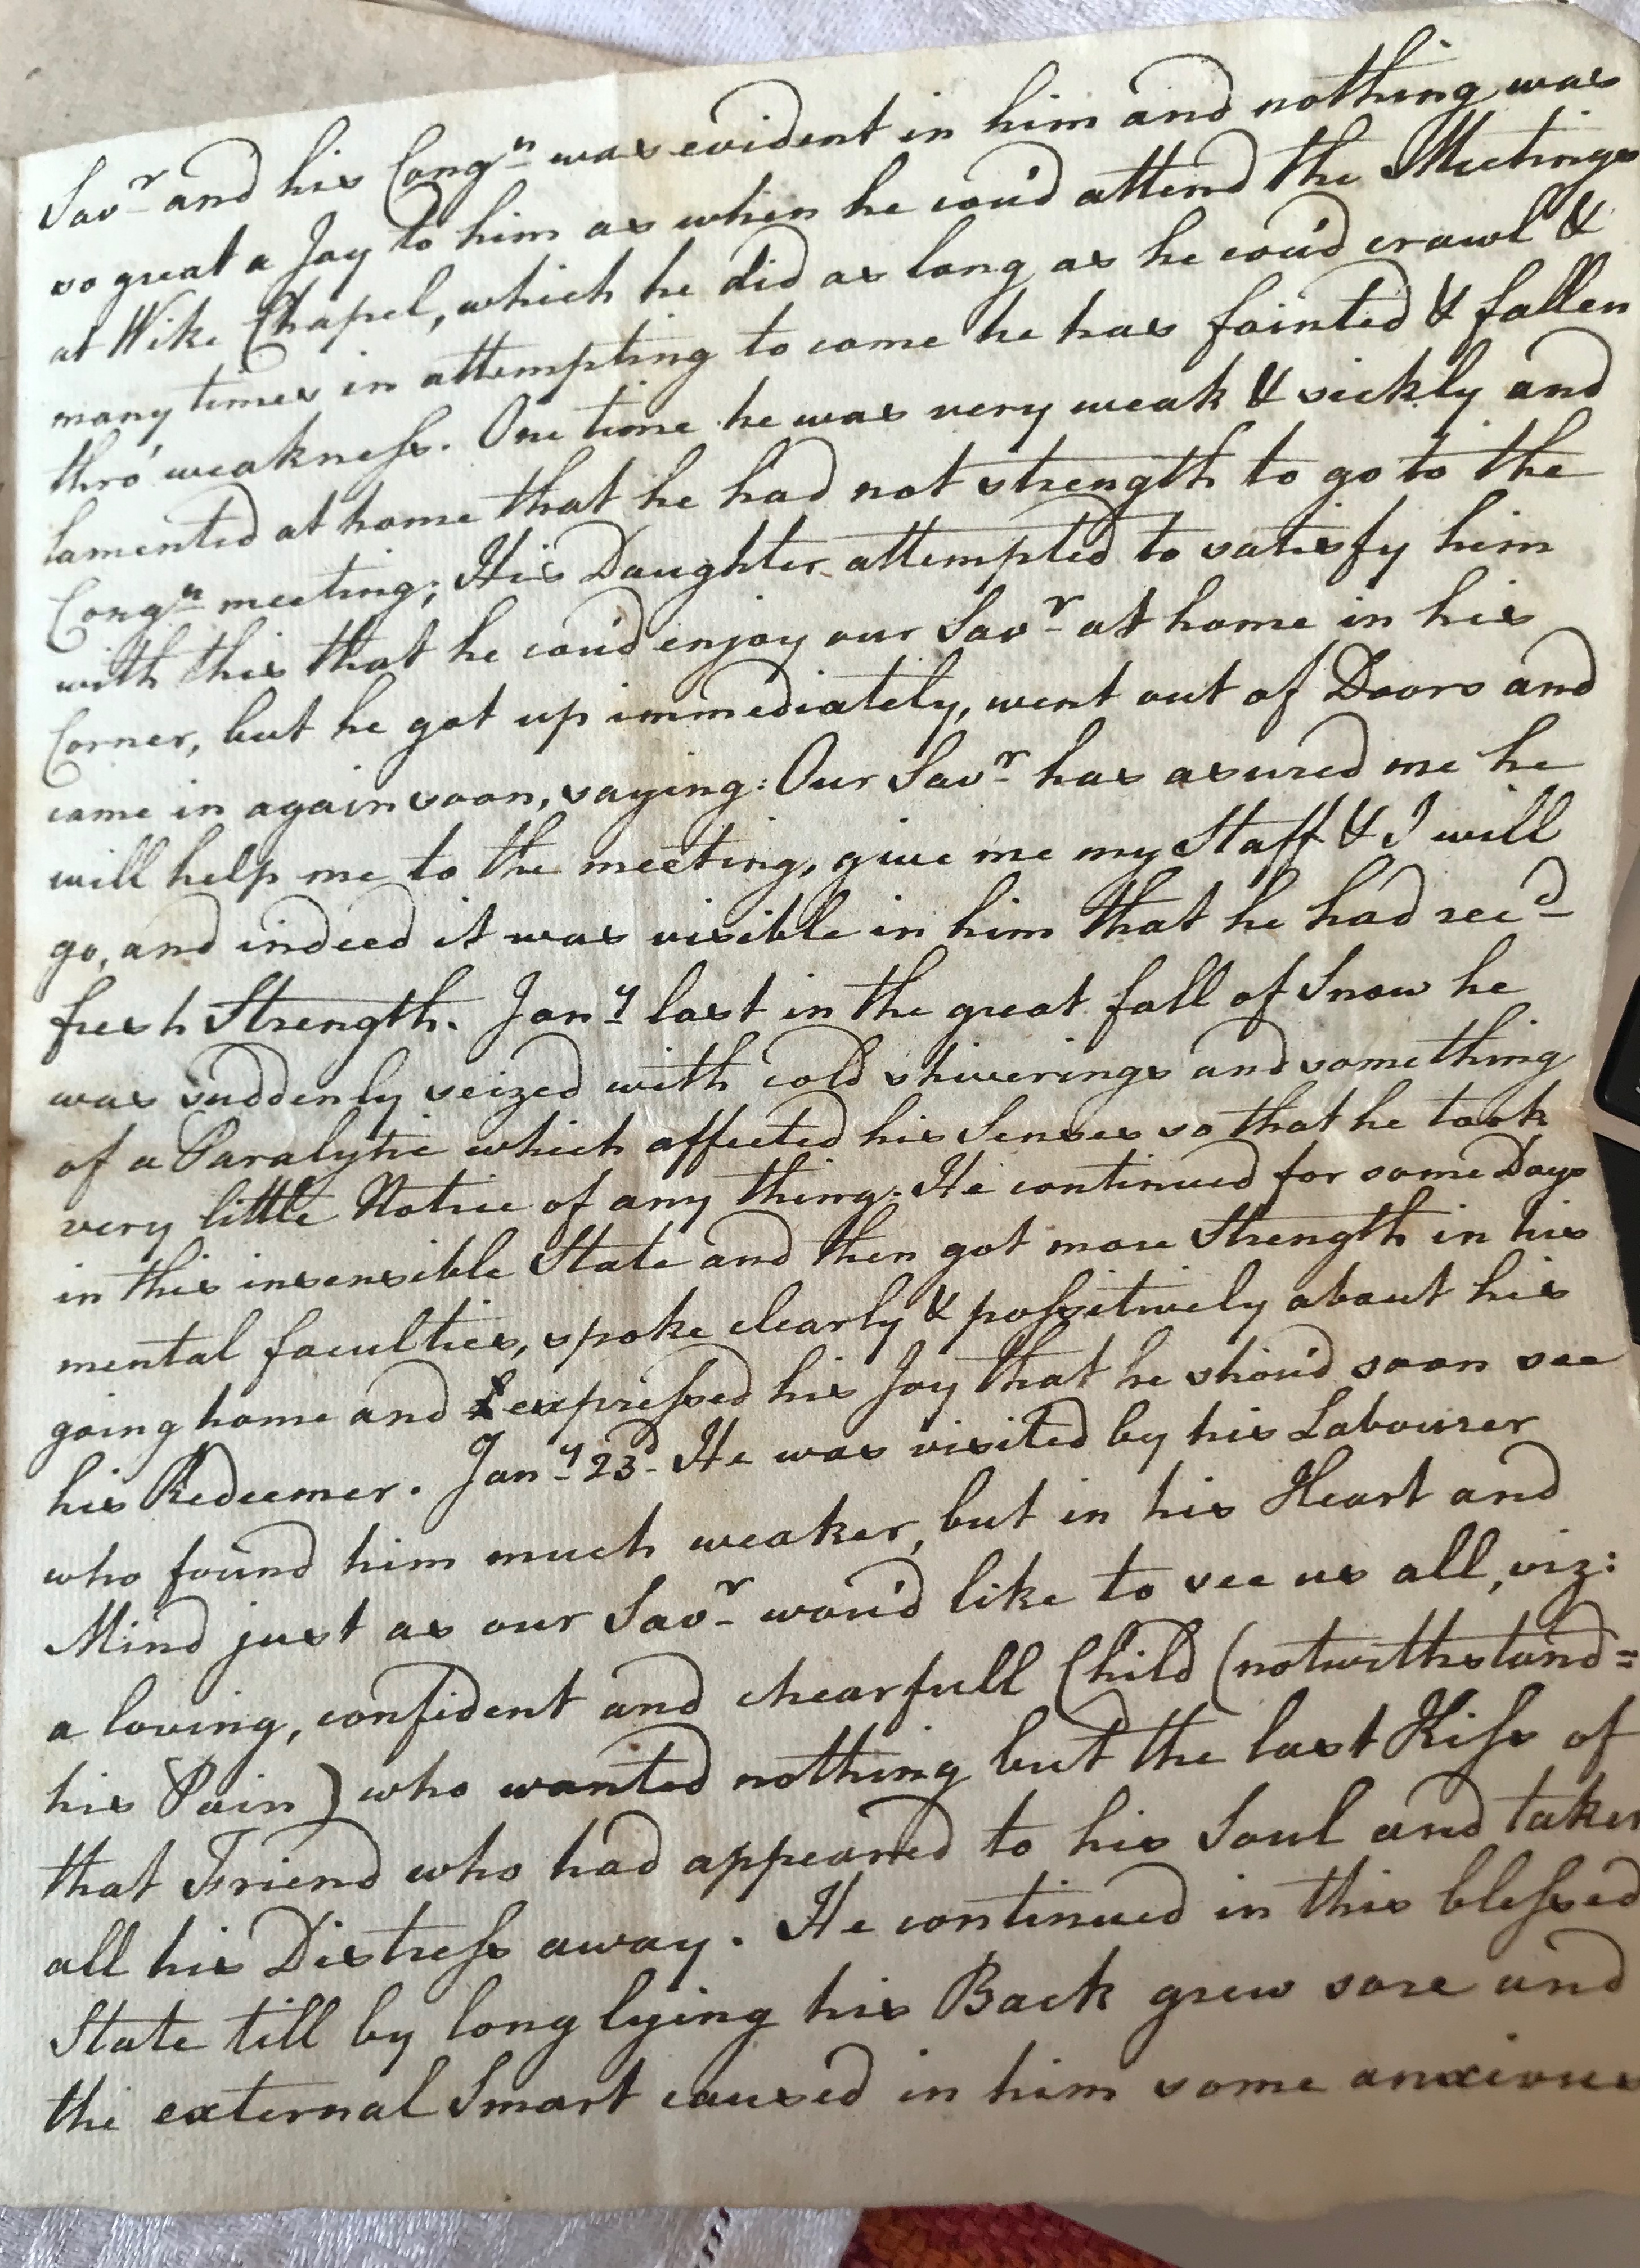 Savr and his Congn was evident in him and nothing was
so great a Joy to him as when he cou'd attend the Meetings
at Wike Chapel, which he did as long as he cou'd crawl &
many times in attempting to come he has fainted & fallen
thro' weakness. One time he was very weak & sickly and
lamented at home that he had not strength to go to the
Congn meeting; His Daughter attempted to satisfy him
with this that he cou'd enjoy our Savr at home in his
Corner, but he got up immediately, went out of Doors and
came in again soon, saying: Our Savr has asured me he
will help me to the meeting, give me my Staff & I will
go, and indeed it was visible in him that he had recd
fresh Strength. Jany last in the great fall of Snow he
was suddenly seized with cold shiverings and something
of a Paralytic which affected his Senses so that he took
very little Notice of any thing. He continued for some Days
in this insensible State and then got more Strength in his
mental faculties, spoke clearly & possitively about his
going home and expressed his Joy that he shou'd soon see
his Redeemer. Jany 23d He was visited by his Labourer
who found him much weaker, but in his Heart and
Mind just as our Savr wou'd like to see us all, viz:
a loving, confident and chearfull Child (notwithstand=
his Pain) who wanted nothing but the last Kiss of
that Friend who had appeared to his Soul and taken
all his Distress away. He continued in this blessed
State till by long lying his Back grew sore and
the external Smart caused in him some anxious